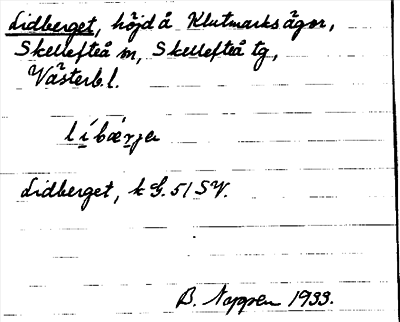 Lidberget, höjd å Klutmarks ägor,
Skellefteå m, Skellefteå tg,
Västerb. l.
líbærje
Lidberget, k G. 51 SV.
B. 1933.